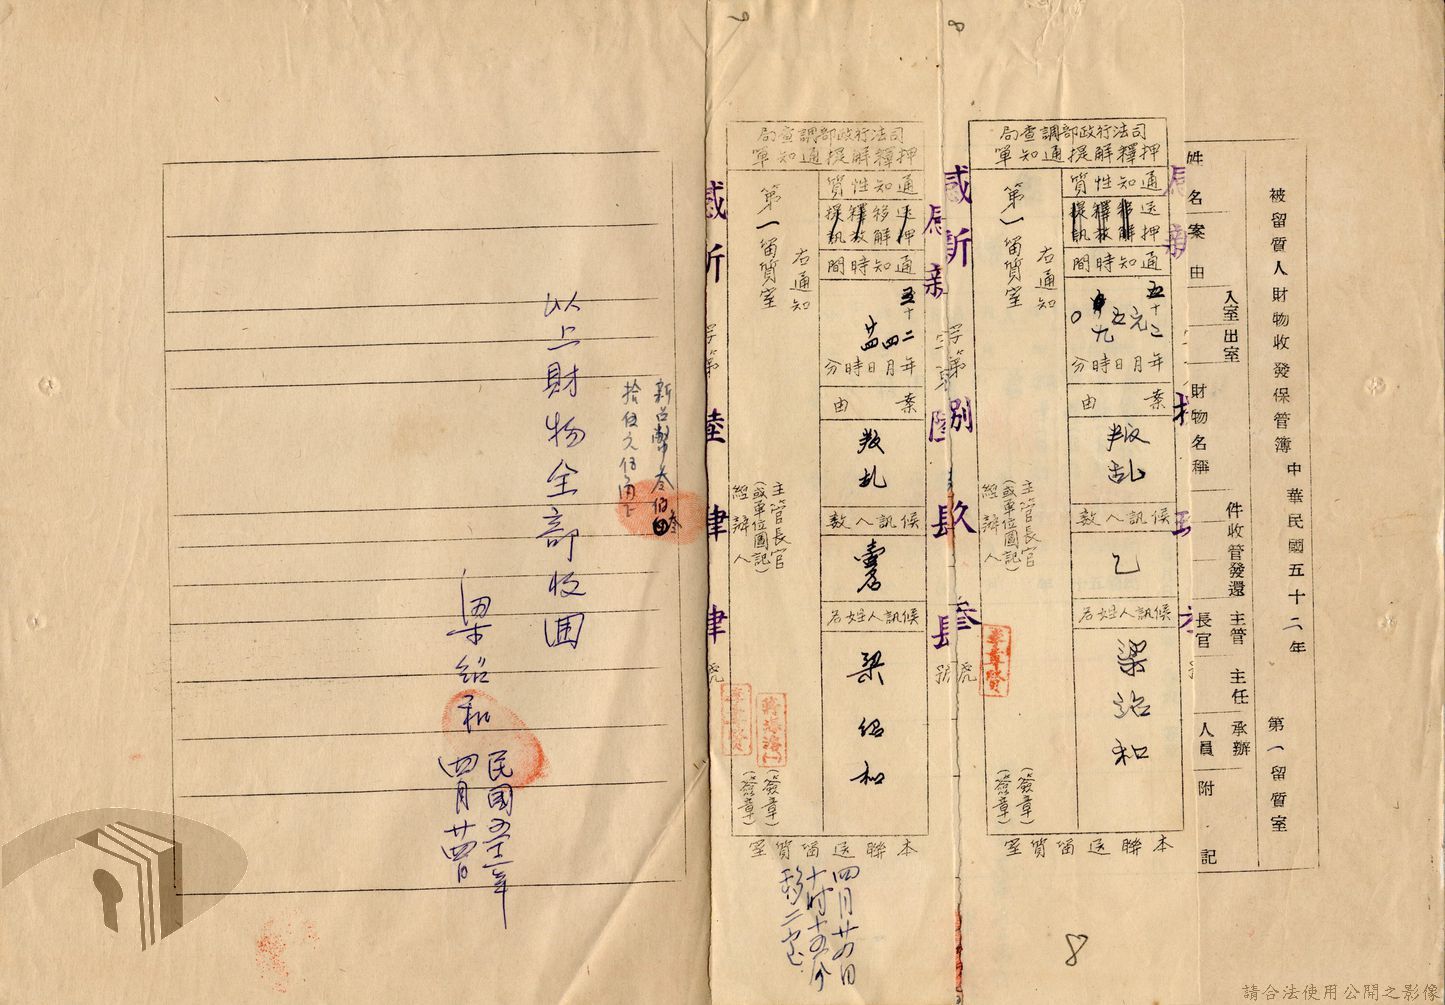 被留質人財物收發保管簿
中華民國五十二年
第一留質室
姓名
案由
入室
出室
財物名稱
件收管發還
主管長官
主任
承辦人員
附記
司法行政部調查局
押釋解提通知單
通知性質
送押
移解
釋放
提訊
通知時間
五十二年元月五日九時0分
案由
叛乱
候訊人數
乙
候訊人姓名
梁紹和
右通知
第一留質室
主管長官
(或單位圖記)
經辦人
(簽章)
(簽章)
本聯送留質室
字第
捌
玖
叁
號
8
司法行政部調查局
押釋解提通知單
通知性質
送押
移解
釋放
提訊
通知時間
五十二年四月廿四日時分
案由
叛乱
候訊人數
壹名
候訊人姓名
梁紹和
右通知
第一留質室
主管長官
(或單位圖記)
經辦人
(簽章)
(簽章)
本聯送留質室
字第
陸
肆
肆
號
四月廿四日
十時十五分
移二室
新台幣叁佰
拾伍元伍角正
以上財物全部收回
梁紹和
民國五十二年
四月廿四日
請合法使用公開之影像